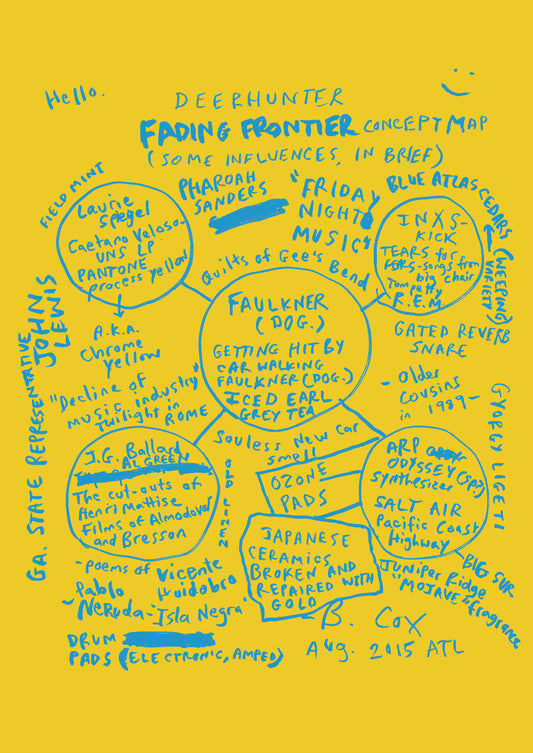 Hello.
DEERHUNTER
FADING FRONTIER CONCEPT MAP
(SOME INFLUENCES, IN BRIEF)
FIELD MINT
Laurie
Spegel
Caetano Veloso-
UNS LP.
PANTONE
process yellow
A.K.A.
Chrome
yellow
PHAROAH
SANDERS
"FRIDAY
NIGHT
MUSIC"
BLUE ATLAS CEDARS (WEEPING)
VARIETY
INXS-
KICK
TEARS for
FERS-songs from
big chair
Tom petty
R.E.M.
Quilts of Gee's Bend
FAULKNER
(DOG.)
GETTING HIT BY
CAR WALKING
FAULKNER (DOG.)
ICED EARL
GREY TEA
GATED REVERB
SNARE
- Older
Cousins
in 1989-
GA. STATE REPRESENTATIVE
JOHN LEWIS
"Decline of
music industry"
Twilight in
ROME
GYORGY LIGETI
Souless New Car
smell
J.G. Ballard
AL GREEN
The cut-outs of
Henri Mattise
Films of Almodovar
and Bresson
OZONE
PADS
ARP
ODYSSEY (sp?)
Synthesizer
SALT AIR
Pacific Coast
Highway
JAPANESE
CERAMICS
BROKEN AND
REPAIRED WITH
GOLD
BIG SUR
JUNIPER Ridge
"MOJAVE" fragrance
-poems of Vicente
Huidobro
Pablo
Neruda-"Isla Negra"
DRUM
PADS (ELECTRONIC, AMPED)
B. Cox
AUG. 2015 ATL